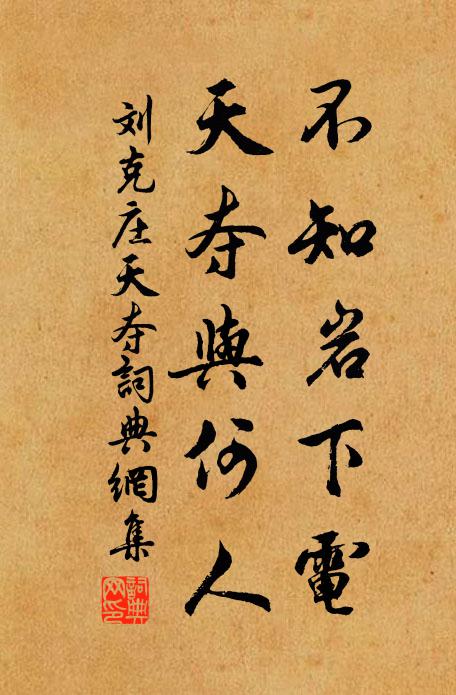 不知岩下電
天夺與何人
刘克庄天夺詞典網集
詞典网印